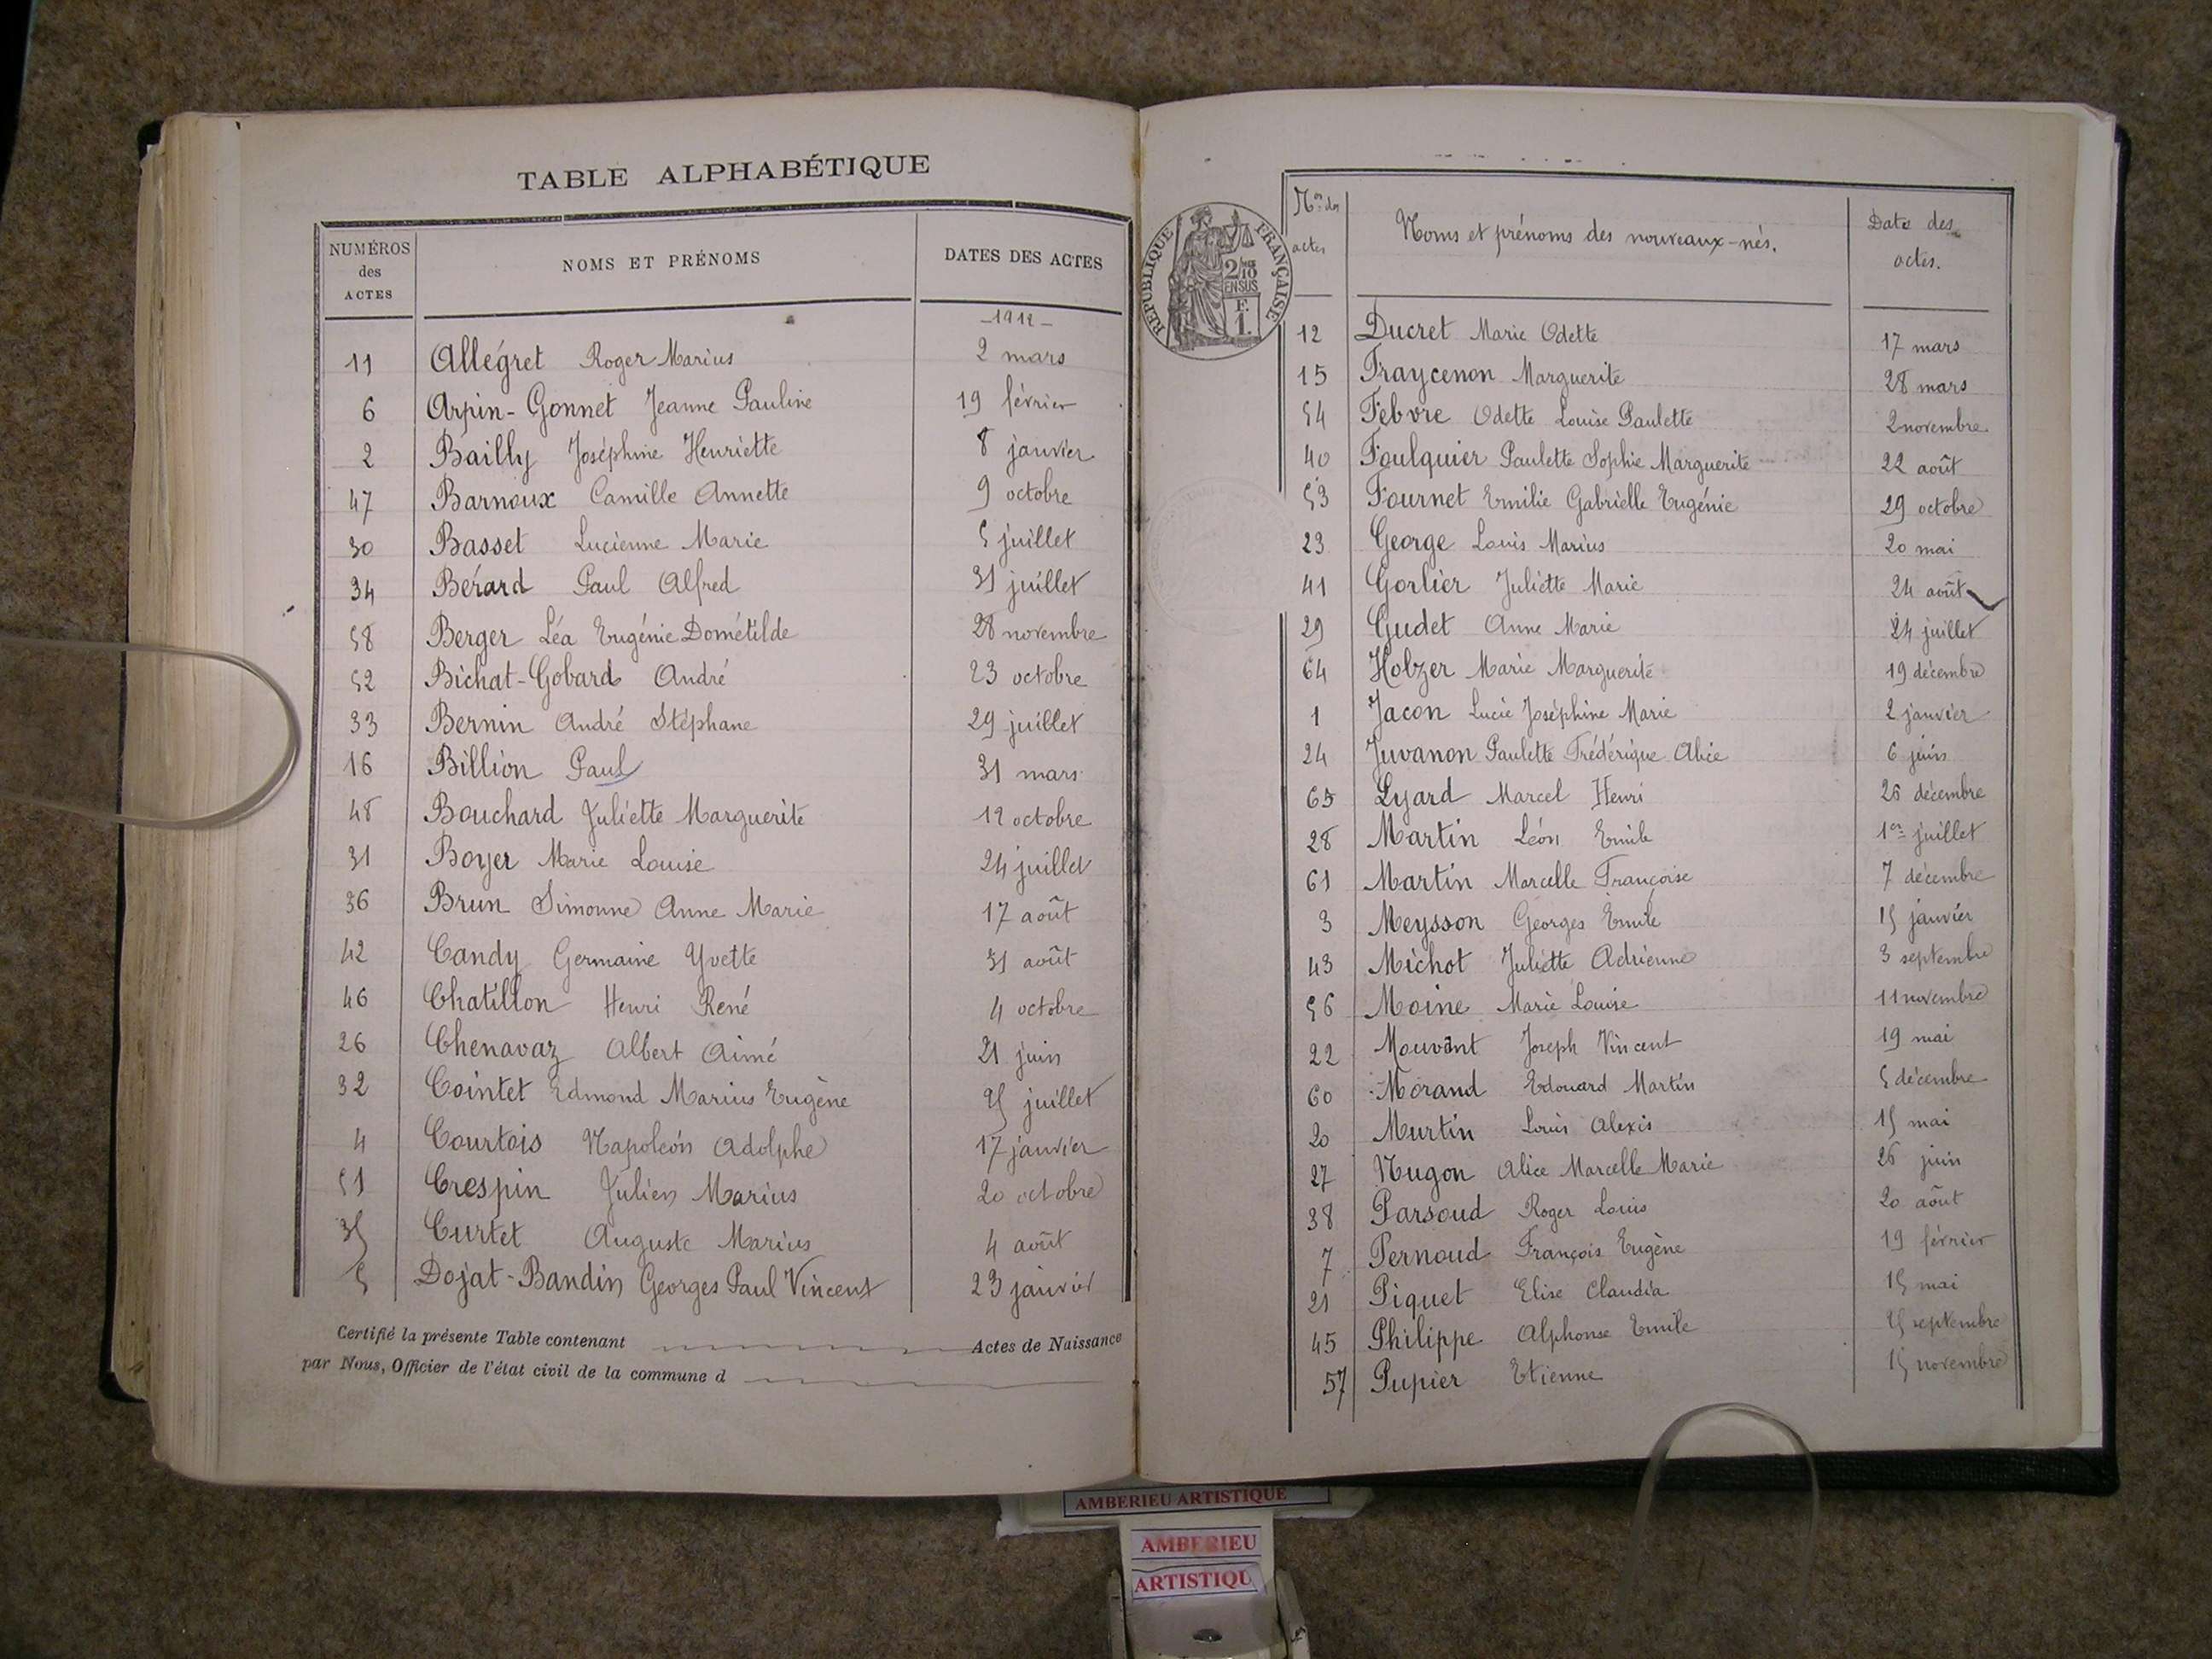 TABLE ALPHABÉTIQUE
NUMÉROS des ACTES NOMS ET PRÉNOMS DATES DES ACTES
-1912-
11 Allégret Roger Marius 2 mars
6 Arpin-Gonnet Jeanne Pauline 19 février
2 Bailly Joséphine Henriette 8 janvier
47 Barnoux Camille Annette 9 octobre
30 Basset Lucienne Marie 5 juillet
34 Bérard Paul Alfred 31 juillet
58 Berger Léa Eugénie Dométilde 28 novembre
52 Bichat-Gobard André 23 octobre
33 Bernin André Stéphane 29 juillet
16 Billion Paul 31 mars
48 Bouchard Juliette Marguerite 12 octobre
31 Boyer Marie Louise 24 juillet
36 Brun Simonne Anne Marie 17 août
42 Candy Germaine Yvette 31 août
46 Chatillon Henri René 4 octobre
26 Chenavaz Albert Aimé 21 juin
32 Cointet Edmond Marius Eugène 25 juillet
4 Courtois Napoléon Adolphe 17 janvier
51 Crespin Julien Marius 20 octobre
35 Curtet Auguste Marius 4 août
5 Dojat-Bandin Georges Paul Vincent 23 janvier
Certifié la présente Table contenant Actes de Naissance
par Nous, Officier de l'état civil de la commune d
RÉPUBLIQUE FRANÇAISE
2/10
EN SUS
F.
1.
Nos des actes Noms et prénoms des nouveaux-nés. Date des actes.
12 Ducret Marie Odette 17 mars
15 Fraycenon Marguerite 28 mars
54 Febvre Odette Louise Paulette 2 novembre
40 Foulquier Paulette Sophie Marguerite 22 août
53 Fournet Emilie Gabrielle Eugénie 29 octobre
23 George Louis Marius 20 mai
41 Gorlier Juliette Marie 24 août
29 Gudet Anne Marie 24 juillet
64 Holzer Marie Marguerite 19 décembre
1 Jacon Lucie Joséphine Marie 2 janvier
24 Juvanon Paulette Frédérique Alice 6 juin
65 Lyard Marcel Henri 26 décembre
28 Martin Léon Emile 1er juillet
61 Martin Marcelle Françoise 7 décembre
3 Meysson Georges Emile 15 janvier
43 Michot Juliette Adrienne 3 septembre
56 Moine Marie Louise 11 novembre
22 Mouvant Joseph Vincent 19 mai
60 Morand Edouard Martin 5 décembre
20 Murtin Louis Alexis 15 mai
27 Nugon Alice Marcelle Marie 26 juin
38 Parsoud Roger Louis 20 août
7 Pernoud François Eugène 19 février
21 Piquet Elise Claudia 15 mai
45 Philippe Alphonse Emile 25 septembre
57 Pupier Etienne 15 novembre
AMBERIEU ARTISTIQUE
AMBERIEU
ARTISTIQU